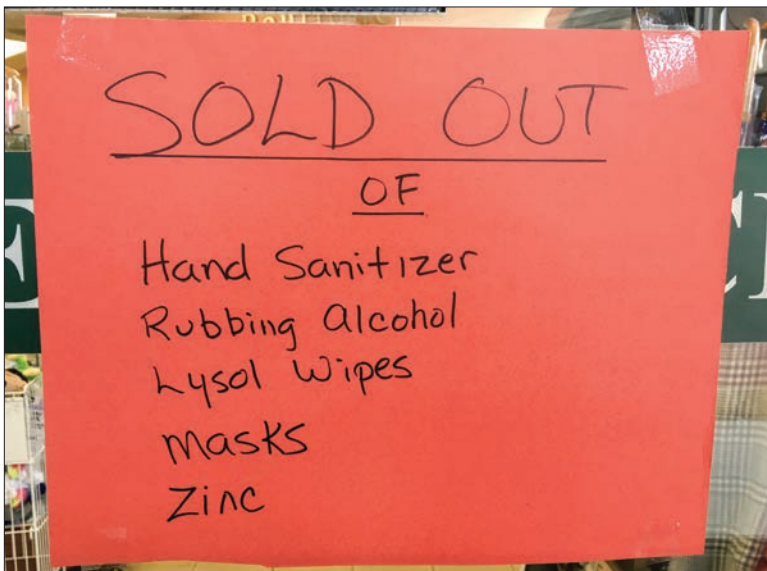 SOLD OUT
OF
Hand Sanitizer
Rubbing Alcohol
Lysol Wipes
Masks
Zinc